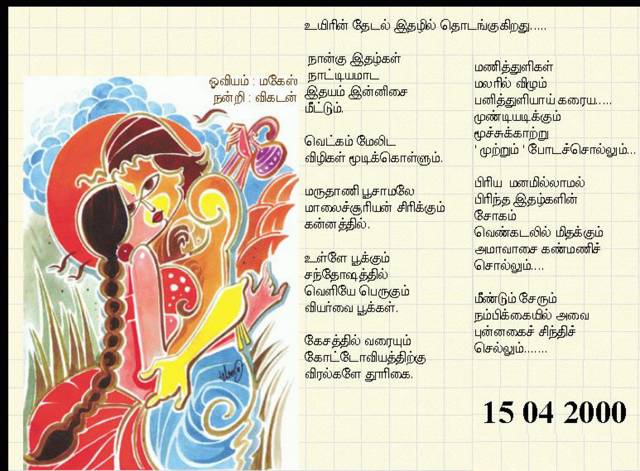 உயிரின் தேடல் இதழில் தொடங்குகிறது.....
ஓவியம் : மகேஸ்
நன்றி : விகடன்
நான்கு இதழ்கள்
நாட்டியமாட
இதயம் இன்னிசை
மீட்டும்.
வெட்கம் மேலிட
விழிகள் மூடிக்கொள்ளும்.
மருதாணி பூசாமலே
மாலைச்சூரியன் சிரிக்கும்
கன்னத்தில்.
உள்ளே பூக்கும்
சந்தோஷத்தில்
வெளியே பெருகும்
வியர்வை பூக்கள்.
கேசத்தில் வரையும்
கோட்டோவியத்திற்கு
விரல்களே தூரிகை.
மணித்துளிகள்
மலரில் விழும்
பனித்துளியாய் கரைய.....
முண்டியடிக்கும்
மூச்சுக்காற்று
'முற்றும் ' போடச்சொல்லும்...
பிரிய மனமில்லாமல்
பிரிந்த இதழ்களின்
சோகம்
வெண்கடலில் மிதக்கும்
அமாவாசை கண்மணிச்
சொல்லும்....
மீண்டும் சேரும்
நம்பிக்கையில் அவை
புன்னகைச் சிந்திச்
செல்லும்.......
15 04 2000